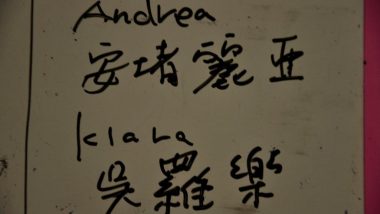 Andrea
安堵麗亜
klara
呉羅樂